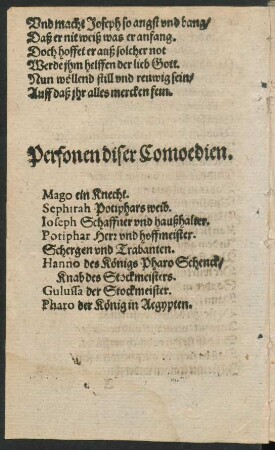 Vnd macht Joseph so angst vnd bang/
Daß er nit weiß was er anfang.
Doch hoffet er auß solcher not
Werde jhm helffen der lieb Gott.
Nun wöllend still vnd reuwig sein/
Auff daß jhr alles mercken fein.
Personen diser Comoedien.
Mago ein Knecht.
Sephirah Potiphars weib.
Ioseph Schaffner vnd haußhalter.
Potiphar Herr vnd hoffmeister.
Schergen vnd Trabanten.
Hanno des Königs Pharo Schenck/
Knab des Stockmeisters.
Gulussa der Stockmeister.
Pharo der König in Aegypten.